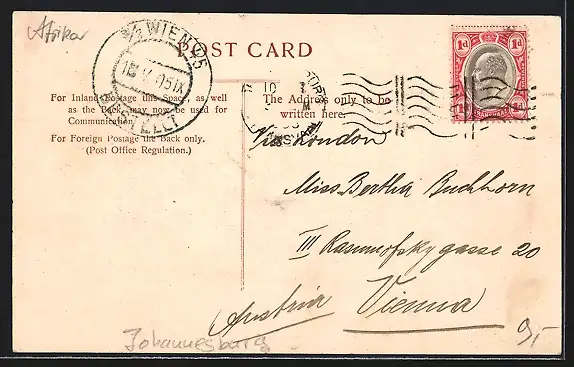 Afrika
3/3 WIEN 45
18 V 05 IX
BESTELLT
POST CARD
1d 1d
For Inland Postage this Space, as well
as the Back, may now be used for
Communication.
For Foreign Postage the Back only.
(Post Office Regulation.)
The Address only to be
written here.
Via London
Miss Bertha Buchhorn
III Rasumofskygasse 20
Austria Vienna
Johannesburg